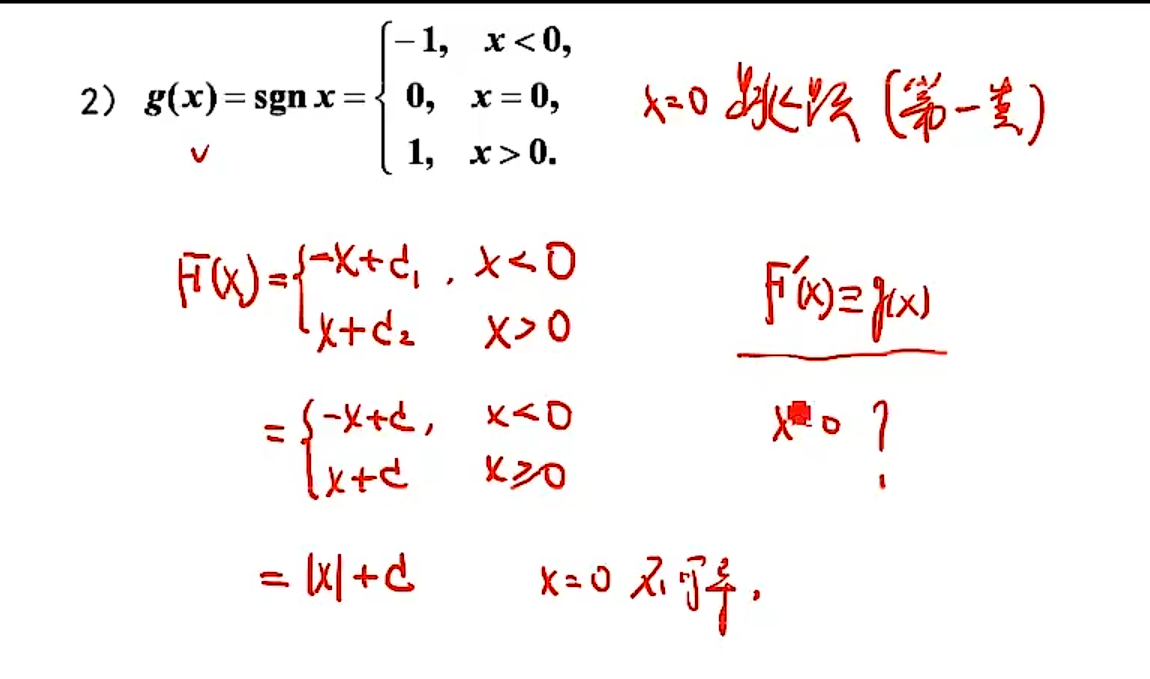 2) g(x)=sgn x= { -1, x<0,
0, x=0,
1, x>0.
x=0 跳跃间断 (第一类)
F(x)= { -x+c₁, x<0
x+c₂ x>0
F'(x)≡g(x)
= { -x+c, x<0
x+c x≥0
x=0 ?
= |x|+c x=0 不可导.